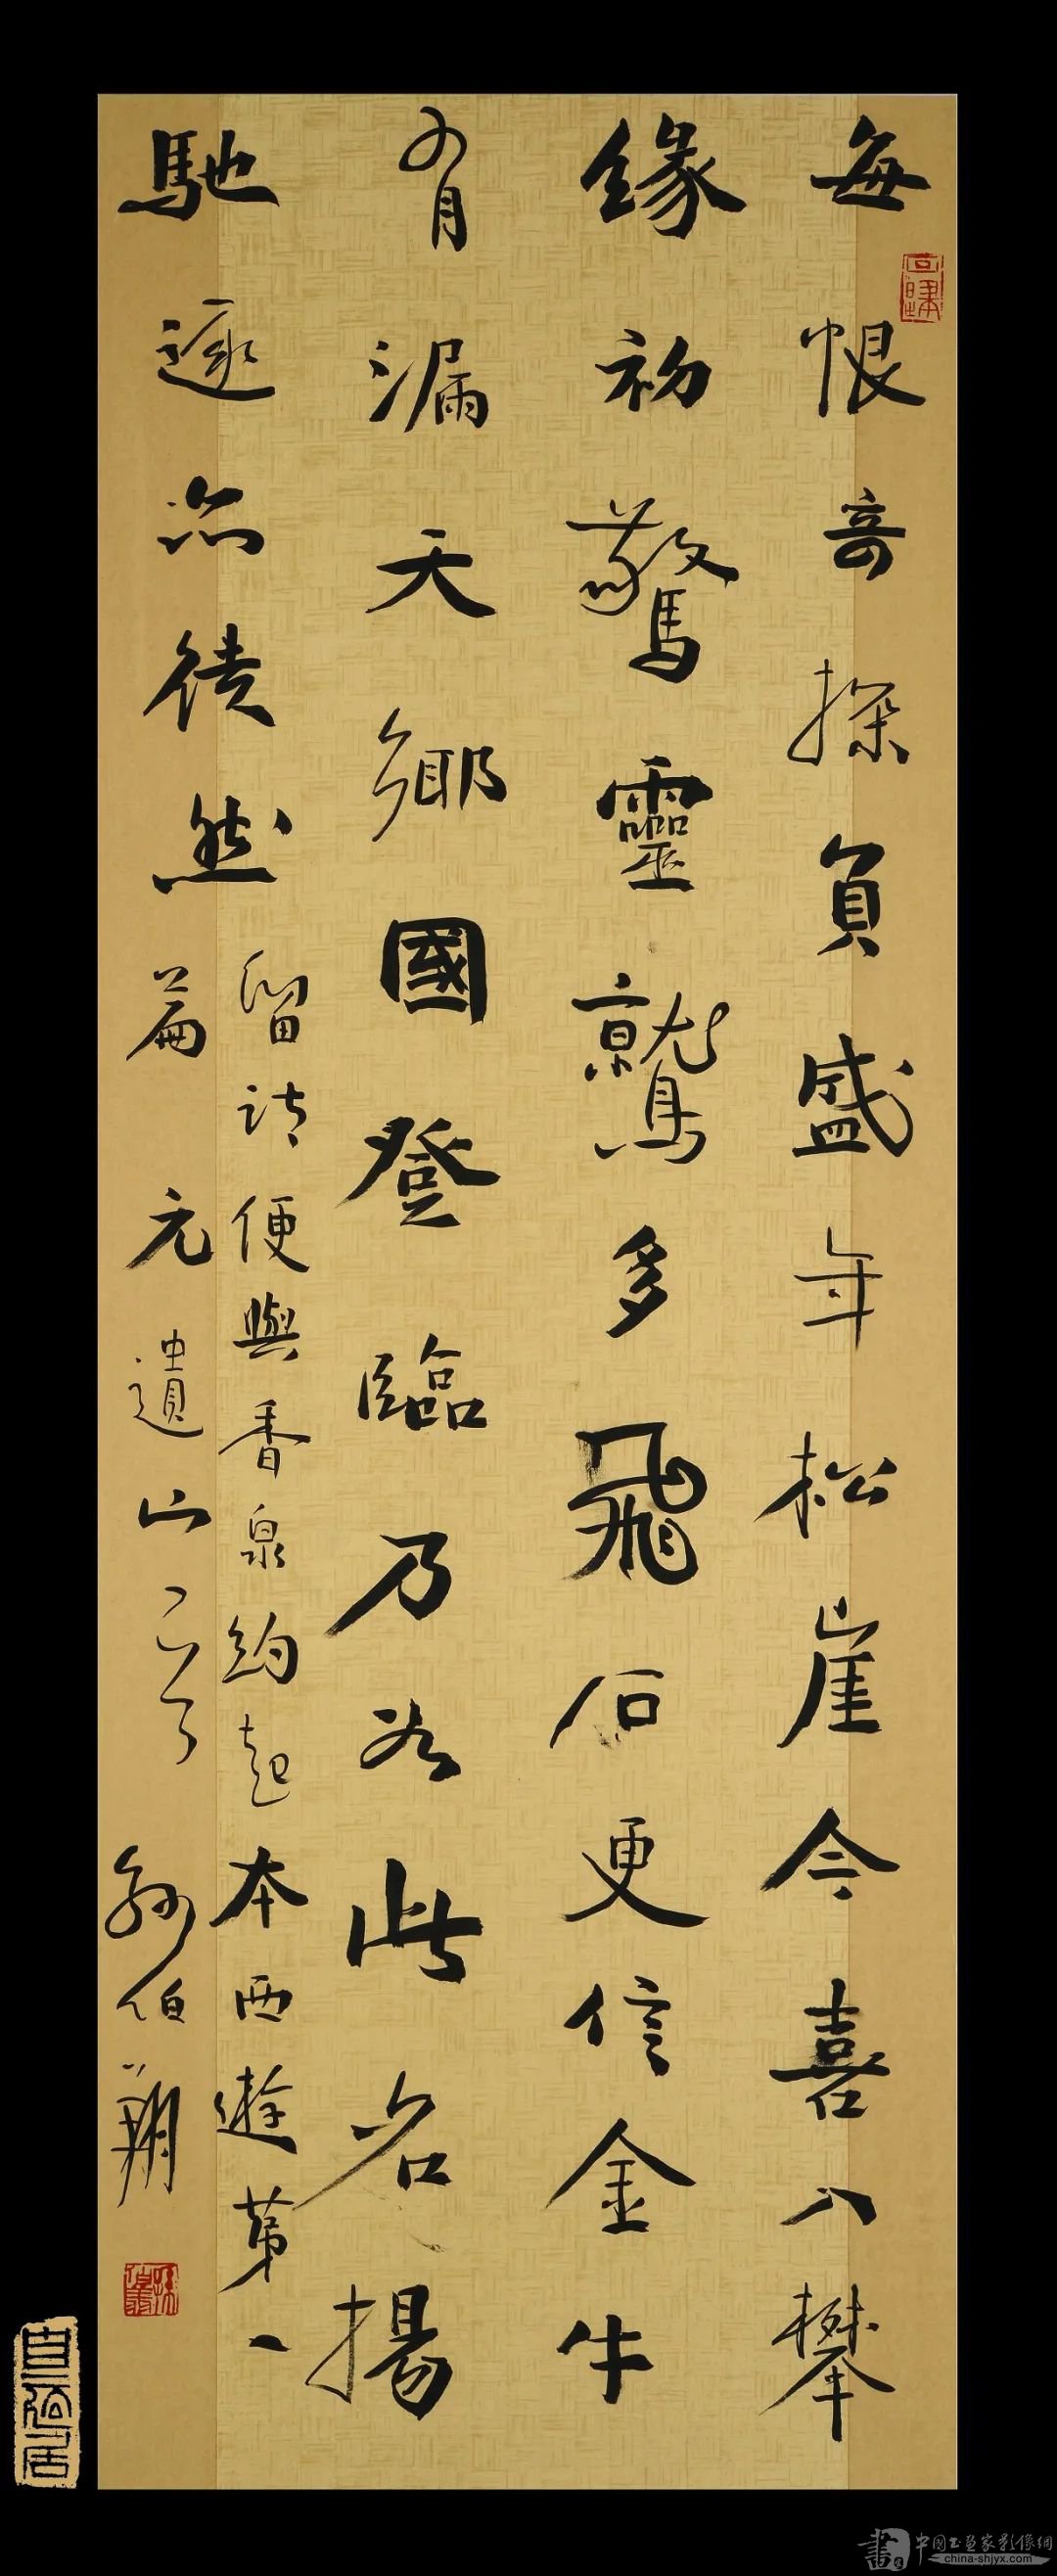 每恨奇探負盛年松崖今喜入攀
緣初驚靈鷲多飛石更信金牛
有漏天鄉國登臨乃此名揚
馳逐亦徒然
留詩便與香泉約起本西遊第一
篇 元遺山 孫伯翔
中國書畫家影像網
china-shjyx.com